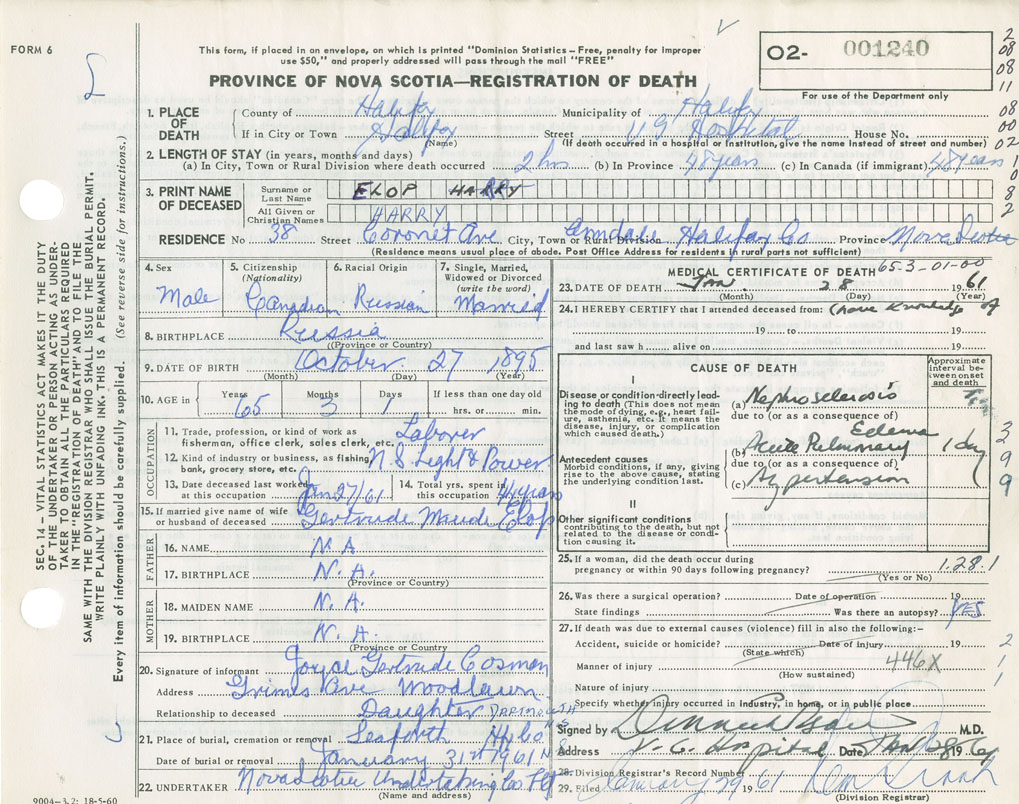 FORM 6
This form, if placed in an envelope, on which is printed "Dominion Statistics – Free, penalty for improper
use $50," and properly addressed will pass through the mail "FREE"
PROVINCE OF NOVA SCOTIA—REGISTRATION OF DEATH
O2- 001240
For use of the Department only
2
08
08
11
08
00
02
1
0
8
2
SEC. 14 – VITAL STATISTICS ACT MAKES IT THE DUTY
OF THE UNDERTAKER OR PERSON ACTING AS UNDER-
TAKER TO OBTAIN ALL THE PARTICULARS REQUIRED
IN THE "REGISTRATION OF DEATH" AND TO FILE THE
SAME WITH THE DIVISION REGISTRAR WHO SHALL ISSUE THE BURIAL PERMIT.
WRITE PLAINLY WITH UNFADING INK. THIS IS A PERMANENT RECORD.
Every item of information should be carefully supplied. (See reverse side for instructions.)
1. PLACE OF DEATH
County of Halifax Municipality of Halifax
If in City or Town Halifax Street V.G. Hospital House No.
(Name) (If death occurred in a hospital or institution, give the name instead of street and number)
2. LENGTH OF STAY (in years, months and days)
(a) In City, Town or Rural Division where death occurred 2 hrs (b) In Province 48 years (c) In Canada (if immigrant) 48 years
3. PRINT NAME OF DECEASED
Surname or Last Name ELOP HARRY
All Given or Christian Names HARRY
RESIDENCE No 38 Street Coronet Ave City, Town or Rural Division Armdale Halifax Co Province Nova Scotia
(Residence means usual place of abode. Post Office Address for residents in rural parts not sufficient)
4. Sex Male
5. Citizenship (Nationality) Canadian
6. Racial Origin Russian
7. Single, Married, Widowed or Divorced (write the word) Married
8. BIRTHPLACE Russia
(Province or Country)
9. DATE OF BIRTH October 27 1895
(Month) (Day) (Year)
10. AGE in Years 65 Months 3 Days 1 If less than one day old
hrs. or min.
OCCUPATION
11. Trade, profession, or kind of work as
fisherman, office clerk, sales clerk, etc. Laborer
12. Kind of industry or business, as fishing,
bank, grocery store, etc. N.S. Light & Power
13. Date deceased last worked
at this occupation Jan 27/61
14. Total yrs. spent in
this occupation years
15. If married give name of wife
or husband of deceased Gertrude Maude Elop
FATHER
16. NAME N.A.
17. BIRTHPLACE N.A.
(Province or Country)
MOTHER
18. MAIDEN NAME N.A.
19. BIRTHPLACE N.A.
(Province or Country)
20. Signature of informant Joyce Gertrude Cosman
Address Grimes Ave Woodlawn
Relationship to deceased Daughter DARTMOUTH N.S
21. Place of burial, cremation or removal Seaforth Hfx Co
Date of burial or removal January 31st 1961 N S
22. UNDERTAKER Nova Scotia Undertaking Co
(Name and address)
9004-3.2: 18-5-60
MEDICAL CERTIFICATE OF DEATH 653-01-00
23. DATE OF DEATH JAN. 28 1961
(Month) (Day) (Year)
24. I HEREBY CERTIFY that I attended deceased from: (have knowledge of
19 to 19
and last saw h alive on 19
CAUSE OF DEATH
Approximate interval between onset and death
I
Disease or condition directly leading to death (This does not mean the mode of dying, e.g., heart failure, asthenia, etc. It means the disease, injury, or complication which caused death.)
(a) Nephrosclerosis
due to (or as a consequence of)
Edema
(b) Acute Pulmonary 1 day
Antecedent causes
Morbid conditions, if any, giving rise to the above cause, stating the underlying condition last.
due to (or as a consequence of)
(c) Hypertension
3
2
9
9
II
Other significant conditions
contributing to the death, but not related to the disease or condition causing it.
25. If a woman, did the death occur during
pregnancy or within 90 days following pregnancy? 1.28.1
(Yes or No)
26. Was there a surgical operation? Date of operation 19
State findings Was there an autopsy? YES
27. If death was due to external causes (violence) fill in also the following:-
Accident, suicide or homicide? Date of injury 19
(State which)
Manner of injury 446X
(How sustained)
Nature of injury
Specify whether injury occurred in industry, in home, or in public place
2
1
1
Signed by M.D.
Address V.G. Hospital Date JAN 28 1961
28. Division Registrar's Record Number
29. Filed January 29 1961
(Division Registrar)